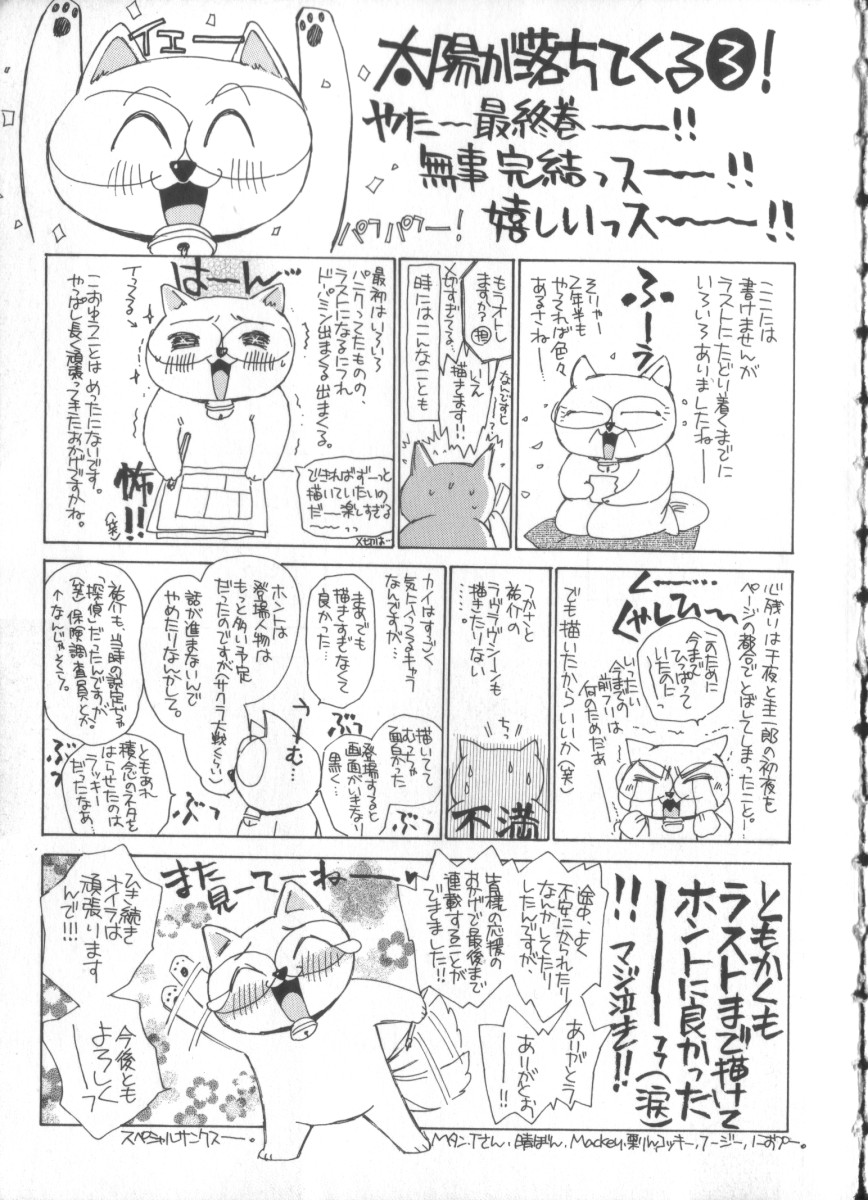 イエー
太陽が落ちてくる③!
やたー最終巻ーー!!
無事完結っスーー!!
嬉しいっスーー!!
パフパフー!
ここには
書けませんが
ラストにたどり着くまでに
いろいろありましたねー
ふーっ
そりゃー
2年半も
やってれば色々
あるさねー
もうオトし
ますか?
担
〆切すぎてる…
なんですとー?
いえ
描きます!!
時にはこんなことも
最初はいろいろ
パニクってたものの、
ラストになるにつれ
ドーパミン出まくる出まくる。
はーん
イってる→
できればずーっと
描いていたいの
だー楽しすぎるーっっ
〆切はー
怖!!
こおゆうことはめったにないです。
やっぱし長く頑張ってきたおかげですかね。
(笑)
心残りは千夜と圭一郎の初夜も
ページの都合でとばしてしまったこと。
く…
くやしひー
このために
今まで
ひっぱって
いたのにっ
いったい
今までの
前フリは
何のためだあー
でも描いたからいいか(笑)
つかさと
祐介の
ラヴラヴシーンも
描きたりない
……。
ちっ
不満
カイはすごく
気にいってるキャラ
なんですが…
まあでも
描きすぎなくて
良かった…
描いてて
むっちゃ
面白かった
登場すると
画面がいきなり
黒く…
うーむ…
ぶっ
ぶっ
ホントは
登場人物は
もっと多い予定
だったのですが(サクラ大戦くらい)
話が進まないんで
やめたりなんかして。
祐介も、当時の設定じゃ
「探偵」だったんですが
(笑)保険調査員とか。
↑なんじゃそりゃ。
ともあれ
積念のネタを
はらせたのは
ラッキー
だったなあ…
ぶっ
ぶっ
ともかくも
ラストまで描けて
ホントに良かった
ーーっっ(涙)
!!マジ泣き!!
途中、よく
不安になったり
なんかしてたり
したんですが、
皆様の応援の
おかげで最後まで
連載することが
できました!!
ありがとう
ーっ
ありがとお
ーっ
また見ーてーねーー♥
ひき続き
オイラは
頑張ります
んで!!!
今後とも
よろしく
ーっ
スペシャルサンクスー。
Mタン.Tさん.晴ぽん.Mackey.栗りん.コッキー.フージー.におぷー。